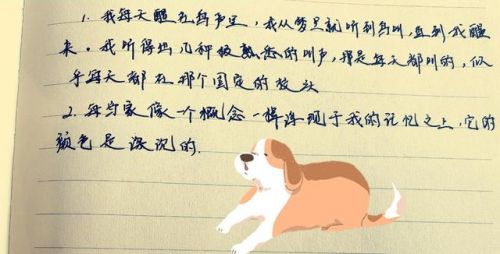 1. 我每天醒在鸟声里，我从梦里就听到鸟叫，直到我醒
来。我听得出几种极熟悉的叫声，那是每天都叫的，似
乎每天都在那个固定的枝头
2. 每当家像一个概念一样浮现于我的记忆之上，它的
颜色是深沉的.